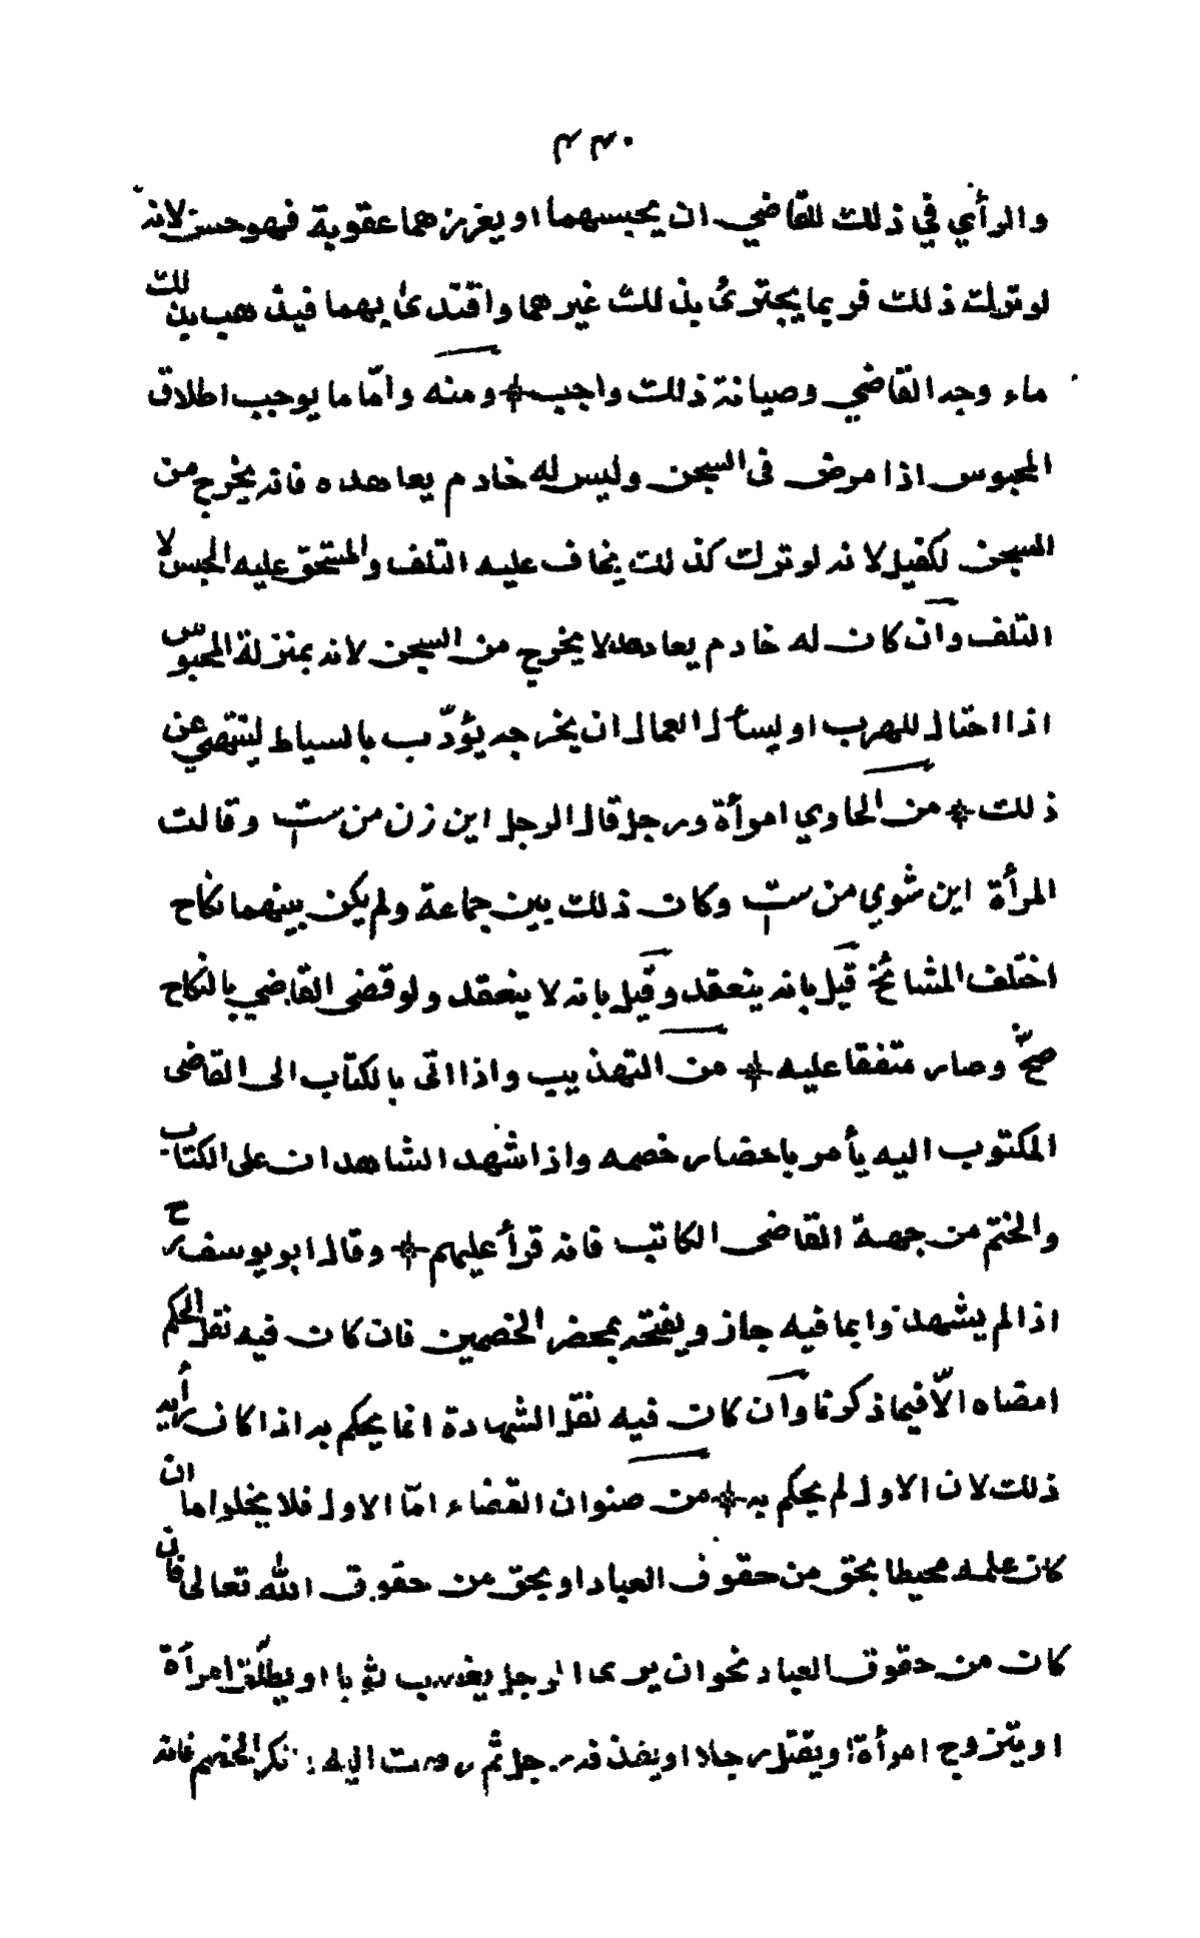 ٤٤٠
والرأي في ذلك للقاضي ان يحبسهما او يعزرهما عقوبة فهو حسن لانه
لو ترك ذلك فربما يجترئ بذلك غيرهما واقتدى بهما فيذهب بذلك
ماء وجه القاضي وصيانة ذلك واجب * ومنه وامّا ما يوجب اطلاق
المحبوس اذا مرض فى السجن وليس له خادم يعاهده فانه يخرج من
السجن لكفيل لانه لو ترك كذلك يخاف عليه التلف والمستحق عليه الحبس لا
التلف وان كان له خادم يعاهده لا يخرج من السجن لانه بمنزلة المحبوس
اذا احتال للهرب او ليسأل العمال ان يخرجه يؤدّب بالسياط لينتهي عن
ذلك * من الحاوي امرأة ورجل قال الرجل اين زن من ست وقالت
المرأة اين شوي من ست وكان ذلك بين جماعة ولم يكن بينهما نكاح
اختلف المشائخ قيل بانه ينعقد وقيل بانه لا ينعقد ولو قضى القاضي بالنكاح
صحّ وصار متفقا عليه * من التهذيب واذا اتى بالكتاب الى القاضى
المكتوب اليه يأمر باحضار خصمه واذا شهد الشاهدان على الكتاب
والختم من جهة القاضى الكاتب فانه قرأ عليهم * وقال ابو يوسف رح
اذا لم يشهدوا بما فيه جاز ويفتحه بمحضر الخصمين فان كان فيه نقل الحكم
امضاه الّا فيما ذكرنا وان كان فيه نقل الشهادة انما يحكم به اذا كان رأيه
ذلك لان الاول لم يحكم به * من صنوان القضاء امّا الاول فلا يخلو اما ان
كان علمه محيطا بحق من حقوق العباد او بحق من حقوق الله تعالى فان
كان من حقوق العباد نحو ان يرى الرجل يغصب ثوبا او يطلّق امرأة
او يتزوج امرأة او يقتل رجلا او يقذف رجل ثم اليه الخصم فانه